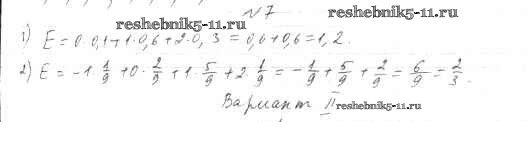 N7
reshebnik5-11.ru
reshebnik5-11.ru
1) E = 0·0,1+1·0,6+2·0,3 = 0,6+0,6=1,2.
2) E = -1·1/9 + 0·2/9 + 1·5/9 + 2·1/9 = -1/9 + 5/9 + 2/9 = 6/9 = 2/3.
Вариант II
reshebnik5-11.ru